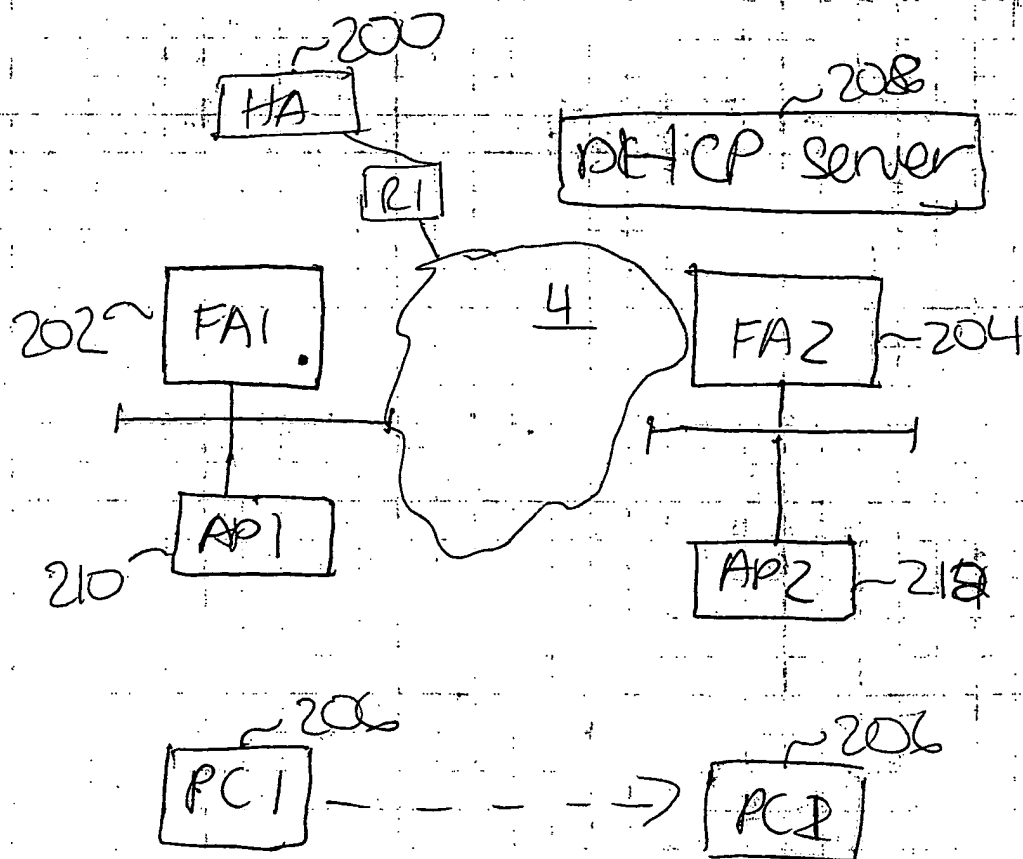 200
HA
208
DHCP server
R1
4
202
FA1
FA2
204
210
AP1
AP2
212
206
PC1
206